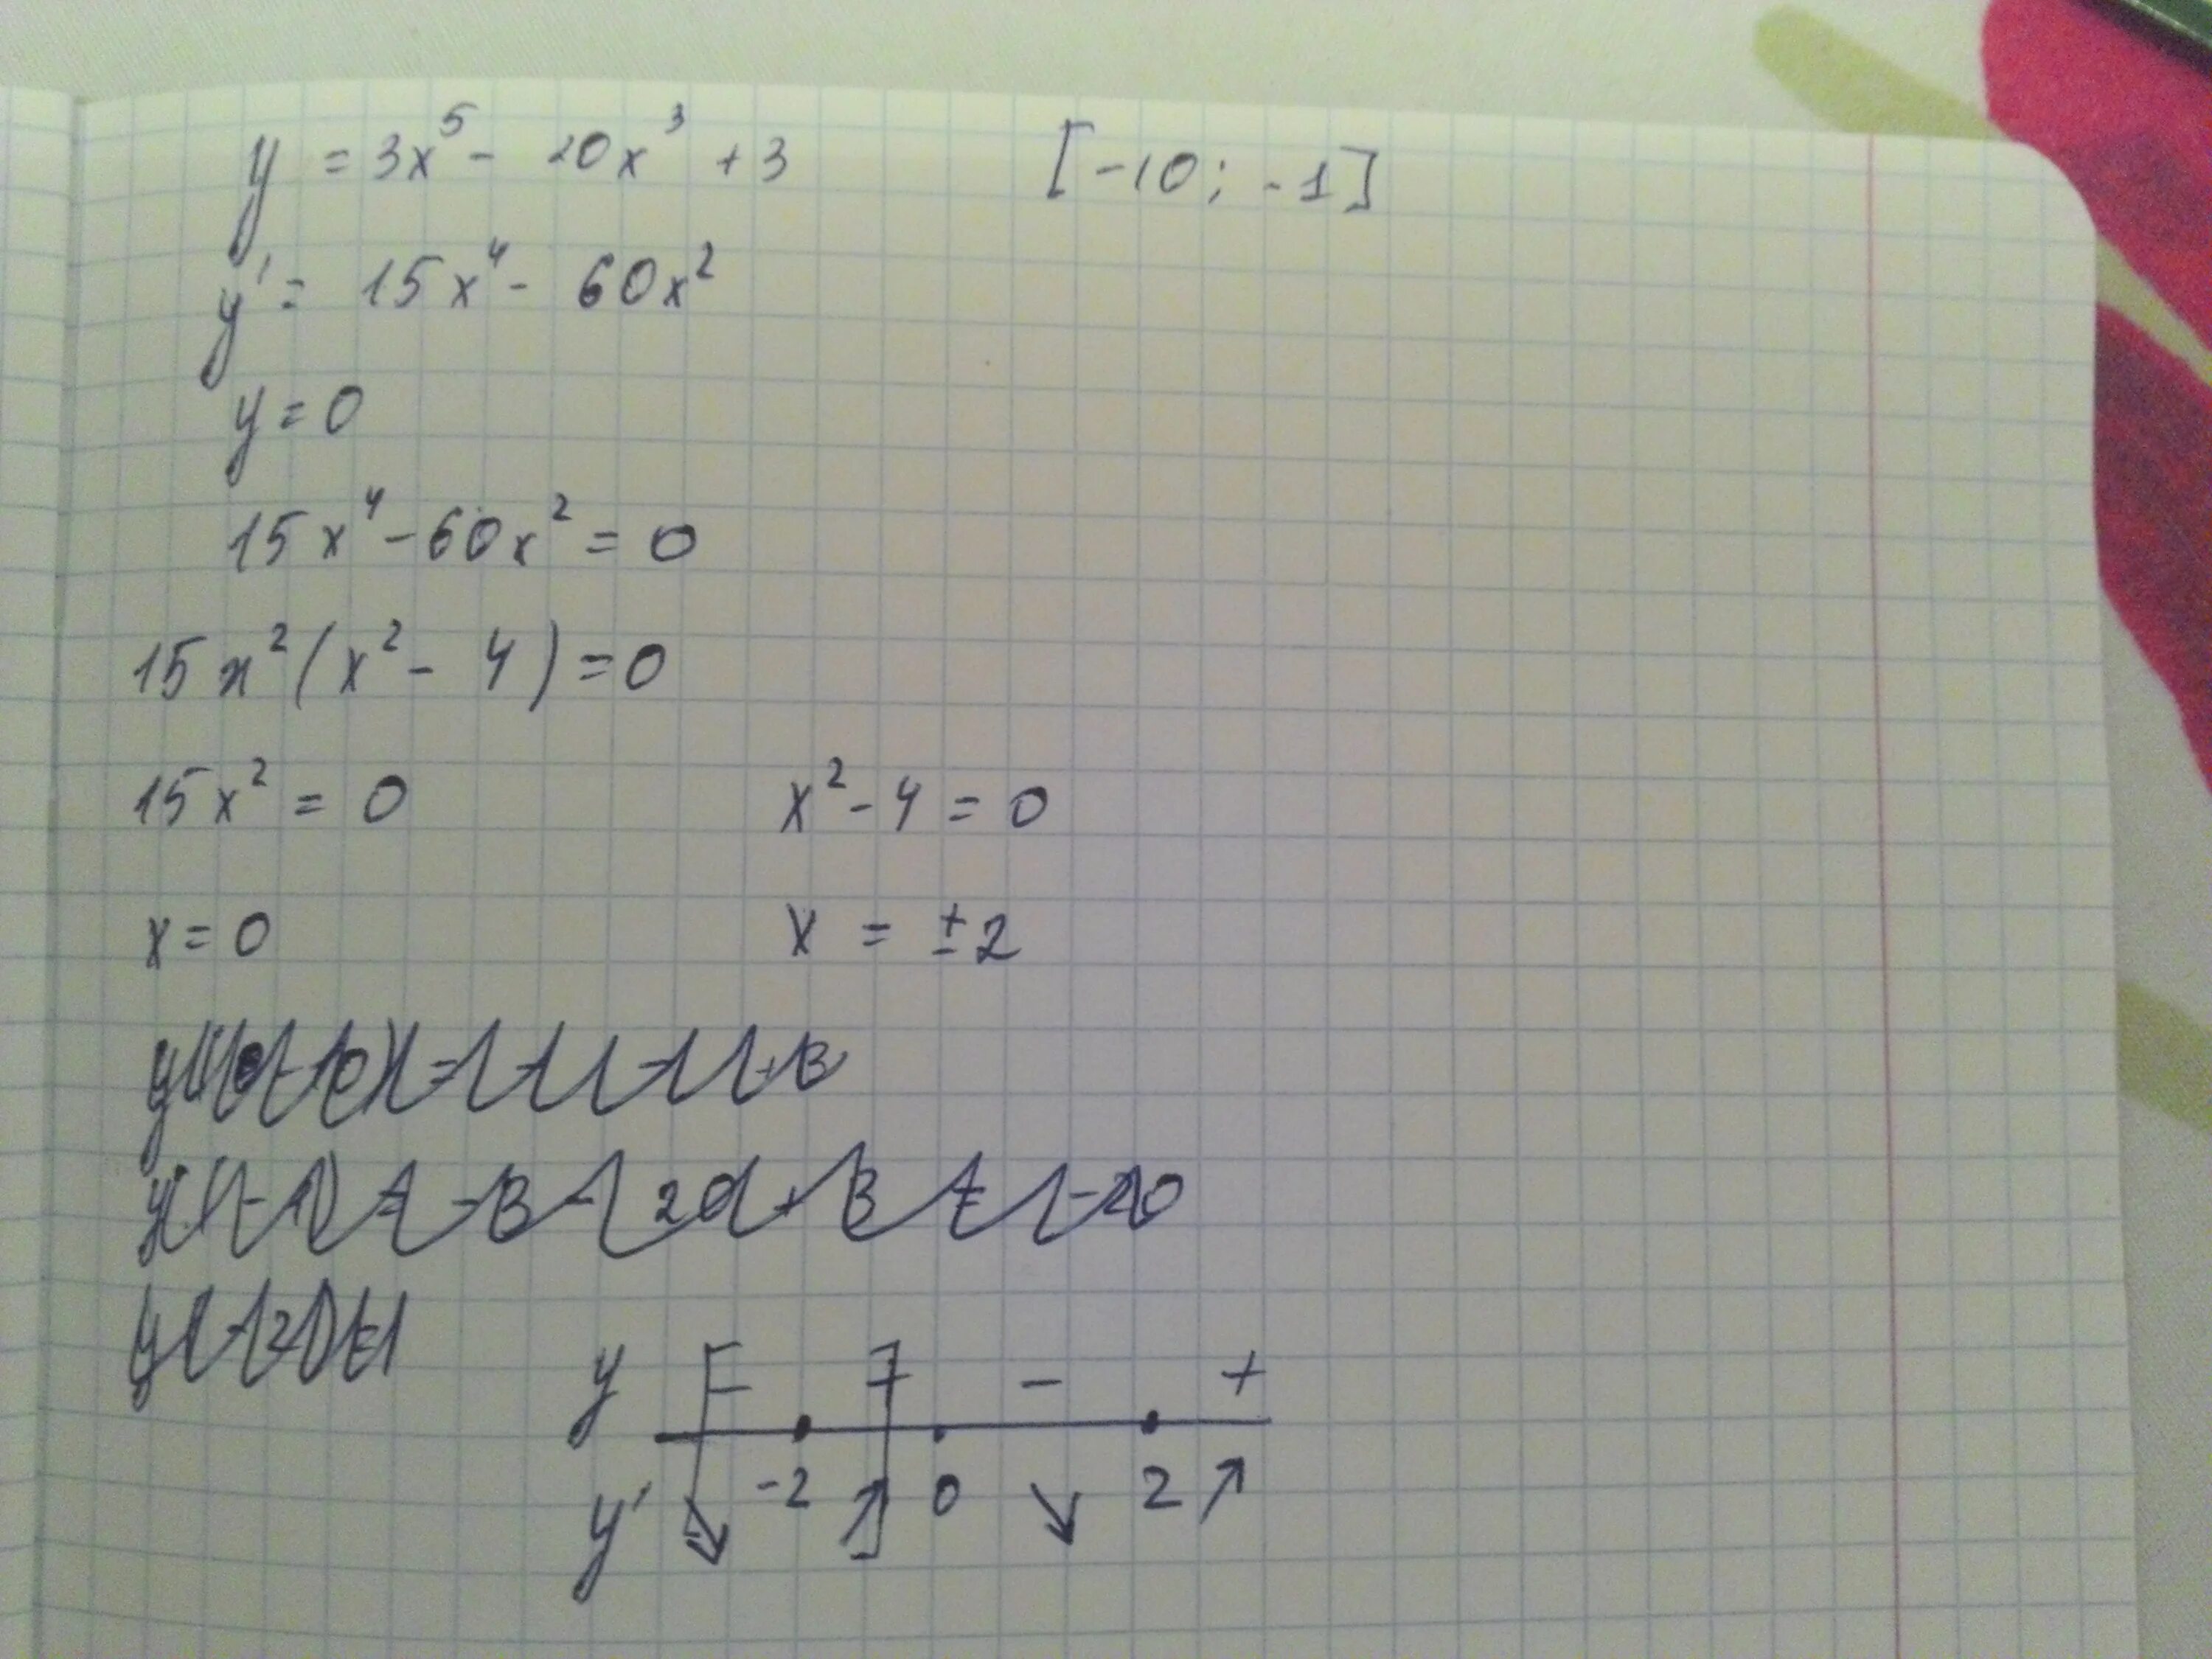 y = 3x⁵ - 20x³ + 3 [-10; -1]
y' = 15x⁴ - 60x²
y = 0
15x⁴ - 60x² = 0
15x² (x² - 4) = 0
15x² = 0 x² - 4 = 0
x = 0 x = ±2
y [ - + ] - +
-2 0 2
y' ↘ ↗ ↘ ↗